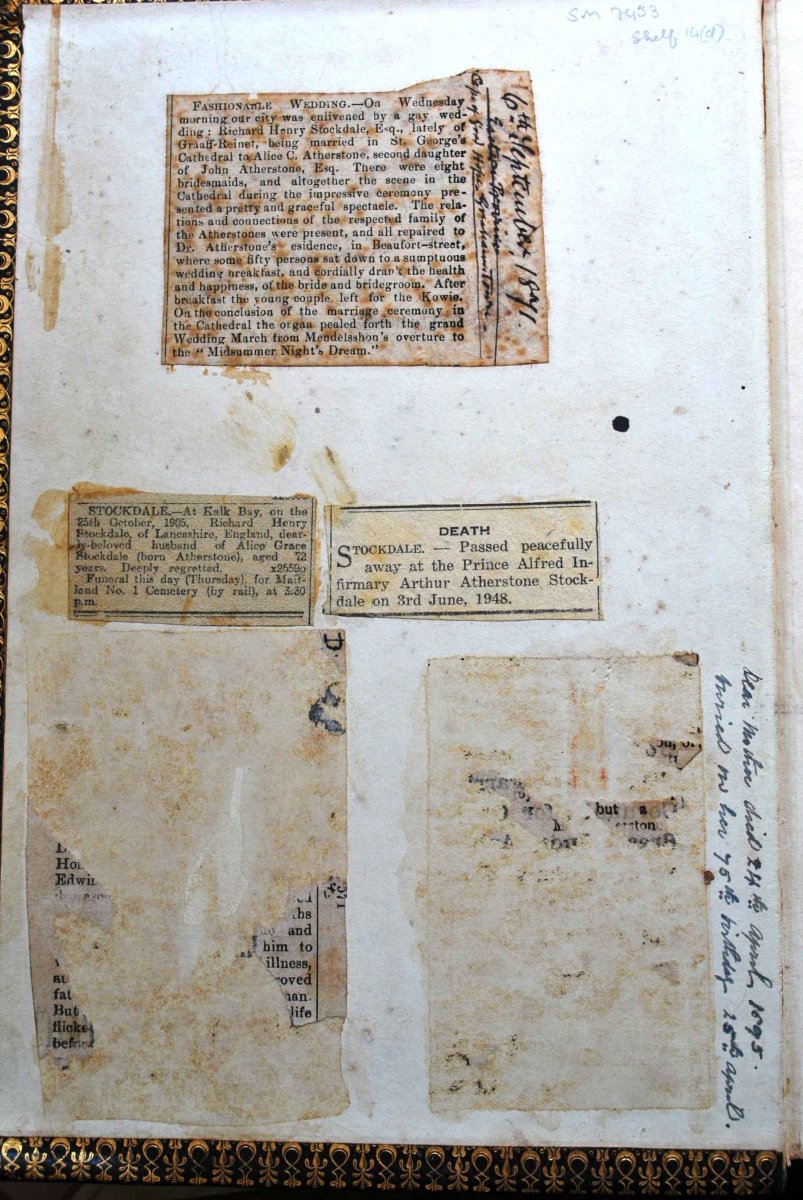 SM 7453
Shelf 14(d)
FASHIONABLE WEDDING.—On Wednesday
morning our city was enlivened by a gay wed-
ding: Richard Henry Stockdale, Esq., lately of
Graaff-Reinet, being married in St. George's
Cathedral to Alice C. Atherstone, second daughter
of John Atherstone, Esq. There were eight
bridesmaids, and altogether the scene in the
Cathedral during the impressive ceremony pre-
sented a pretty and graceful spectacle. The rela-
tions and connections of the respected family of
the Atherstones were present, and all repaired to
Dr. Atherstone's esidence, in Beaufort-street,
where some fifty persons sat down to a sumptuous
wedding breakfast, and cordially drank the health
and happiness, of the bride and bridegroom. After
breakfast the young couple left for the Kowie.
On the conclusion of the marriage ceremony in
the Cathedral the organ pealed forth the grand
Wedding March from Mendelsshon's overture to
the "Midsummer Night's Dream."
6th September, 1871.
STOCKDALE.—At Kalk Bay, on the
25th October, 1905, Richard Henry
Stockdale, of Lancashire, England, dear-
ly-beloved husband of Alice Grace
Stockdale (born Atherstone), aged 72
years. Deeply regretted. x2659o
Funeral this day (Thursday), for Mait-
land No. 1 Cemetery (by rail), at 3.30
p.m.
DEATH
STOCKDALE. — Passed peacefully
away at the Prince Alfred In-
firmary Arthur Atherstone Stock-
dale on 3rd June, 1948.
Edwi
and
him to
illness,
oved
fat
But
life
flicke
befo
but a
erston
Dear Mother died 24th April 1895.
buried on her 75th birthday 25th April.